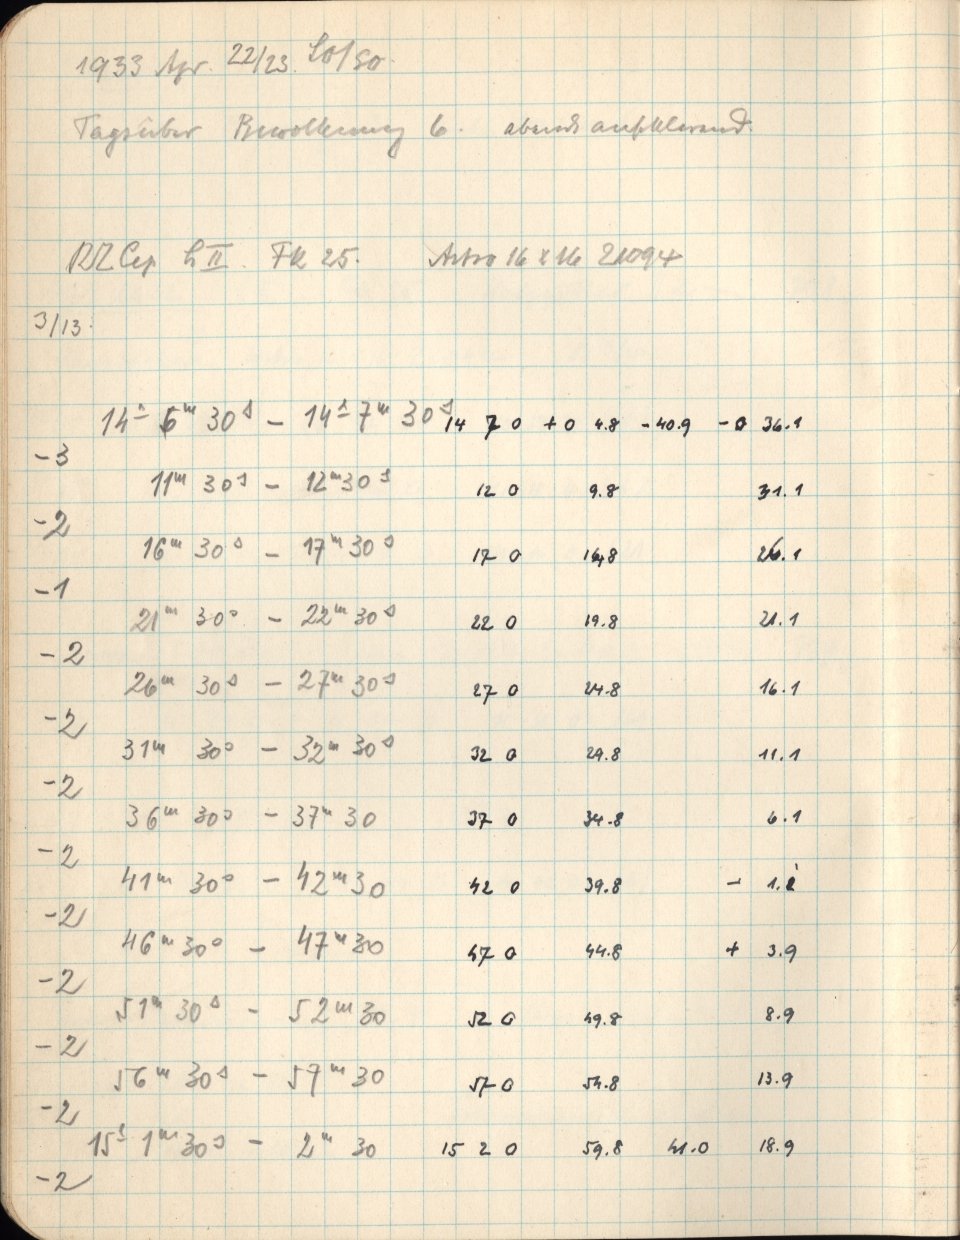 1933 Apr. 22/23. So/So.
Tagsüber Bewölkung 6. abends aufklarend.
RZ Cep h II. Fk 25. Astro 16 x 16 21094
3/13.
14ʰ 6ᵐ 30ˢ – 14ʰ 7ᵐ 30ˢ 14 7 0 +0 4.8 -40.9 -0 36.1
-3
11ᵐ 30ˢ – 12ᵐ 30ˢ 12 0 9.8 31.1
-2
16ᵐ 30ˢ – 17ᵐ 30ˢ 17 0 14.8 26.1
-1
21ᵐ 30ˢ – 22ᵐ 30ˢ 22 0 19.8 21.1
-2
26ᵐ 30ˢ – 27ᵐ 30ˢ 27 0 24.8 16.1
-2
31ᵐ 30ˢ – 32ᵐ 30ˢ 32 0 29.8 11.1
-2
36ᵐ 30ˢ – 37ᵐ 30 37 0 34.8 6.1
-2
41ᵐ 30ˢ – 42ᵐ 30 42 0 39.8 – 1.1
-2
46ᵐ 30ˢ – 47ᵐ 30 47 0 44.8 + 3.9
-2
51ᵐ 30ˢ – 52ᵐ 30 52 0 49.8 8.9
-2
56ᵐ 30ˢ – 57ᵐ 30 57 0 54.8 13.9
-2
15ʰ 1ᵐ 30ˢ – 2ᵐ 30 15 2 0 59.8 41.0 18.9
-2